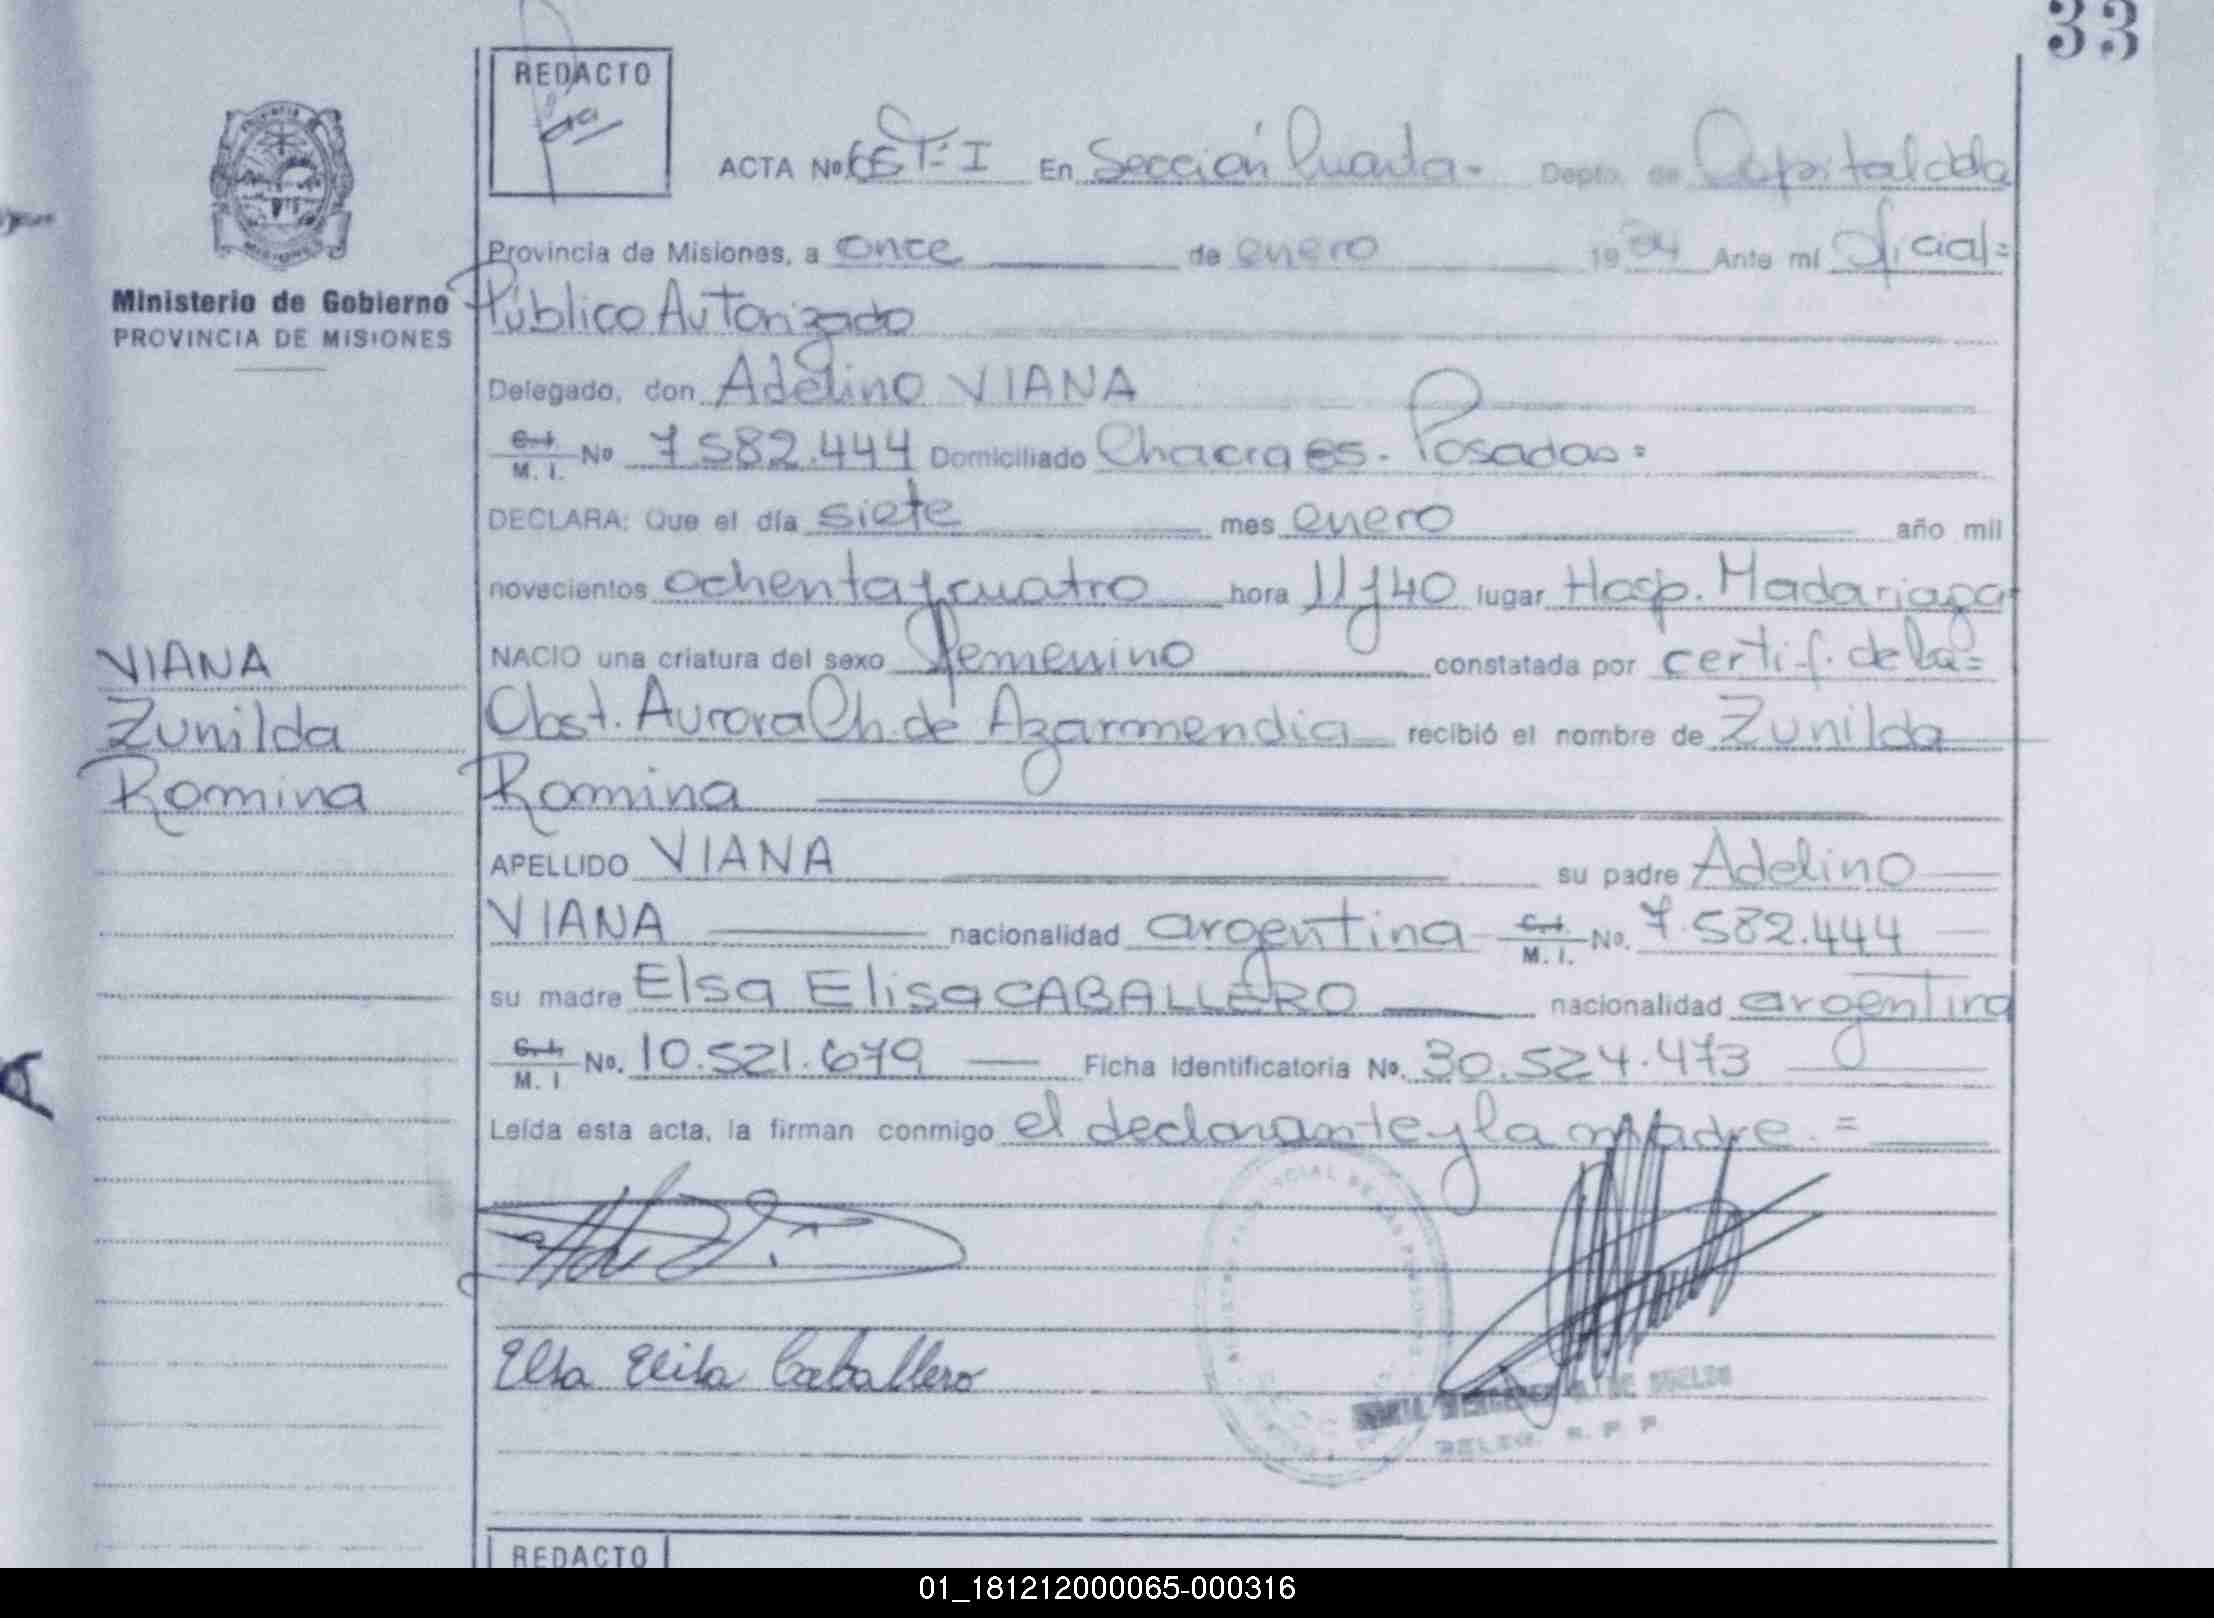 33
REDACTO
ACTA Nº 65 T-I En Sección Cuarta- Depto. de Capital de la
Provincia de Misiones, a once de enero 1984 Ante mí Oficial=
Ministerio de Gobierno
PROVINCIA DE MISIONES
Público Autorizado
Delegado, don Adelino VIANA
C.I. M. I. Nº 7.582.444 Domiciliado Chacra 65. Posadas=
DECLARA: Que el día siete mes enero año mil
novecientos ochenta y cuatro hora 11 y 40 lugar Hosp. Madariaga
NACIO una criatura del sexo femenino constatada por certif. de la=
Obst. Aurora Ch. de Azarmendia recibió el nombre de Zunilda
Romina
VIANA
Zunilda
Romina
APELLIDO VIANA su padre Adelino
VIANA nacionalidad argentina C.I. M. I. No. 7.582.444
su madre Elsa Elisa CABALLERO nacionalidad argentina
C.I. M. I No. 10.521.679 Ficha Identificatoria No. 30.524.473
Leída esta acta, la firman conmigo el declarante y la madre. =
Elsa Elisa Caballero
DELEG. R. P. P.
REDACTO
01_181212000065-000316